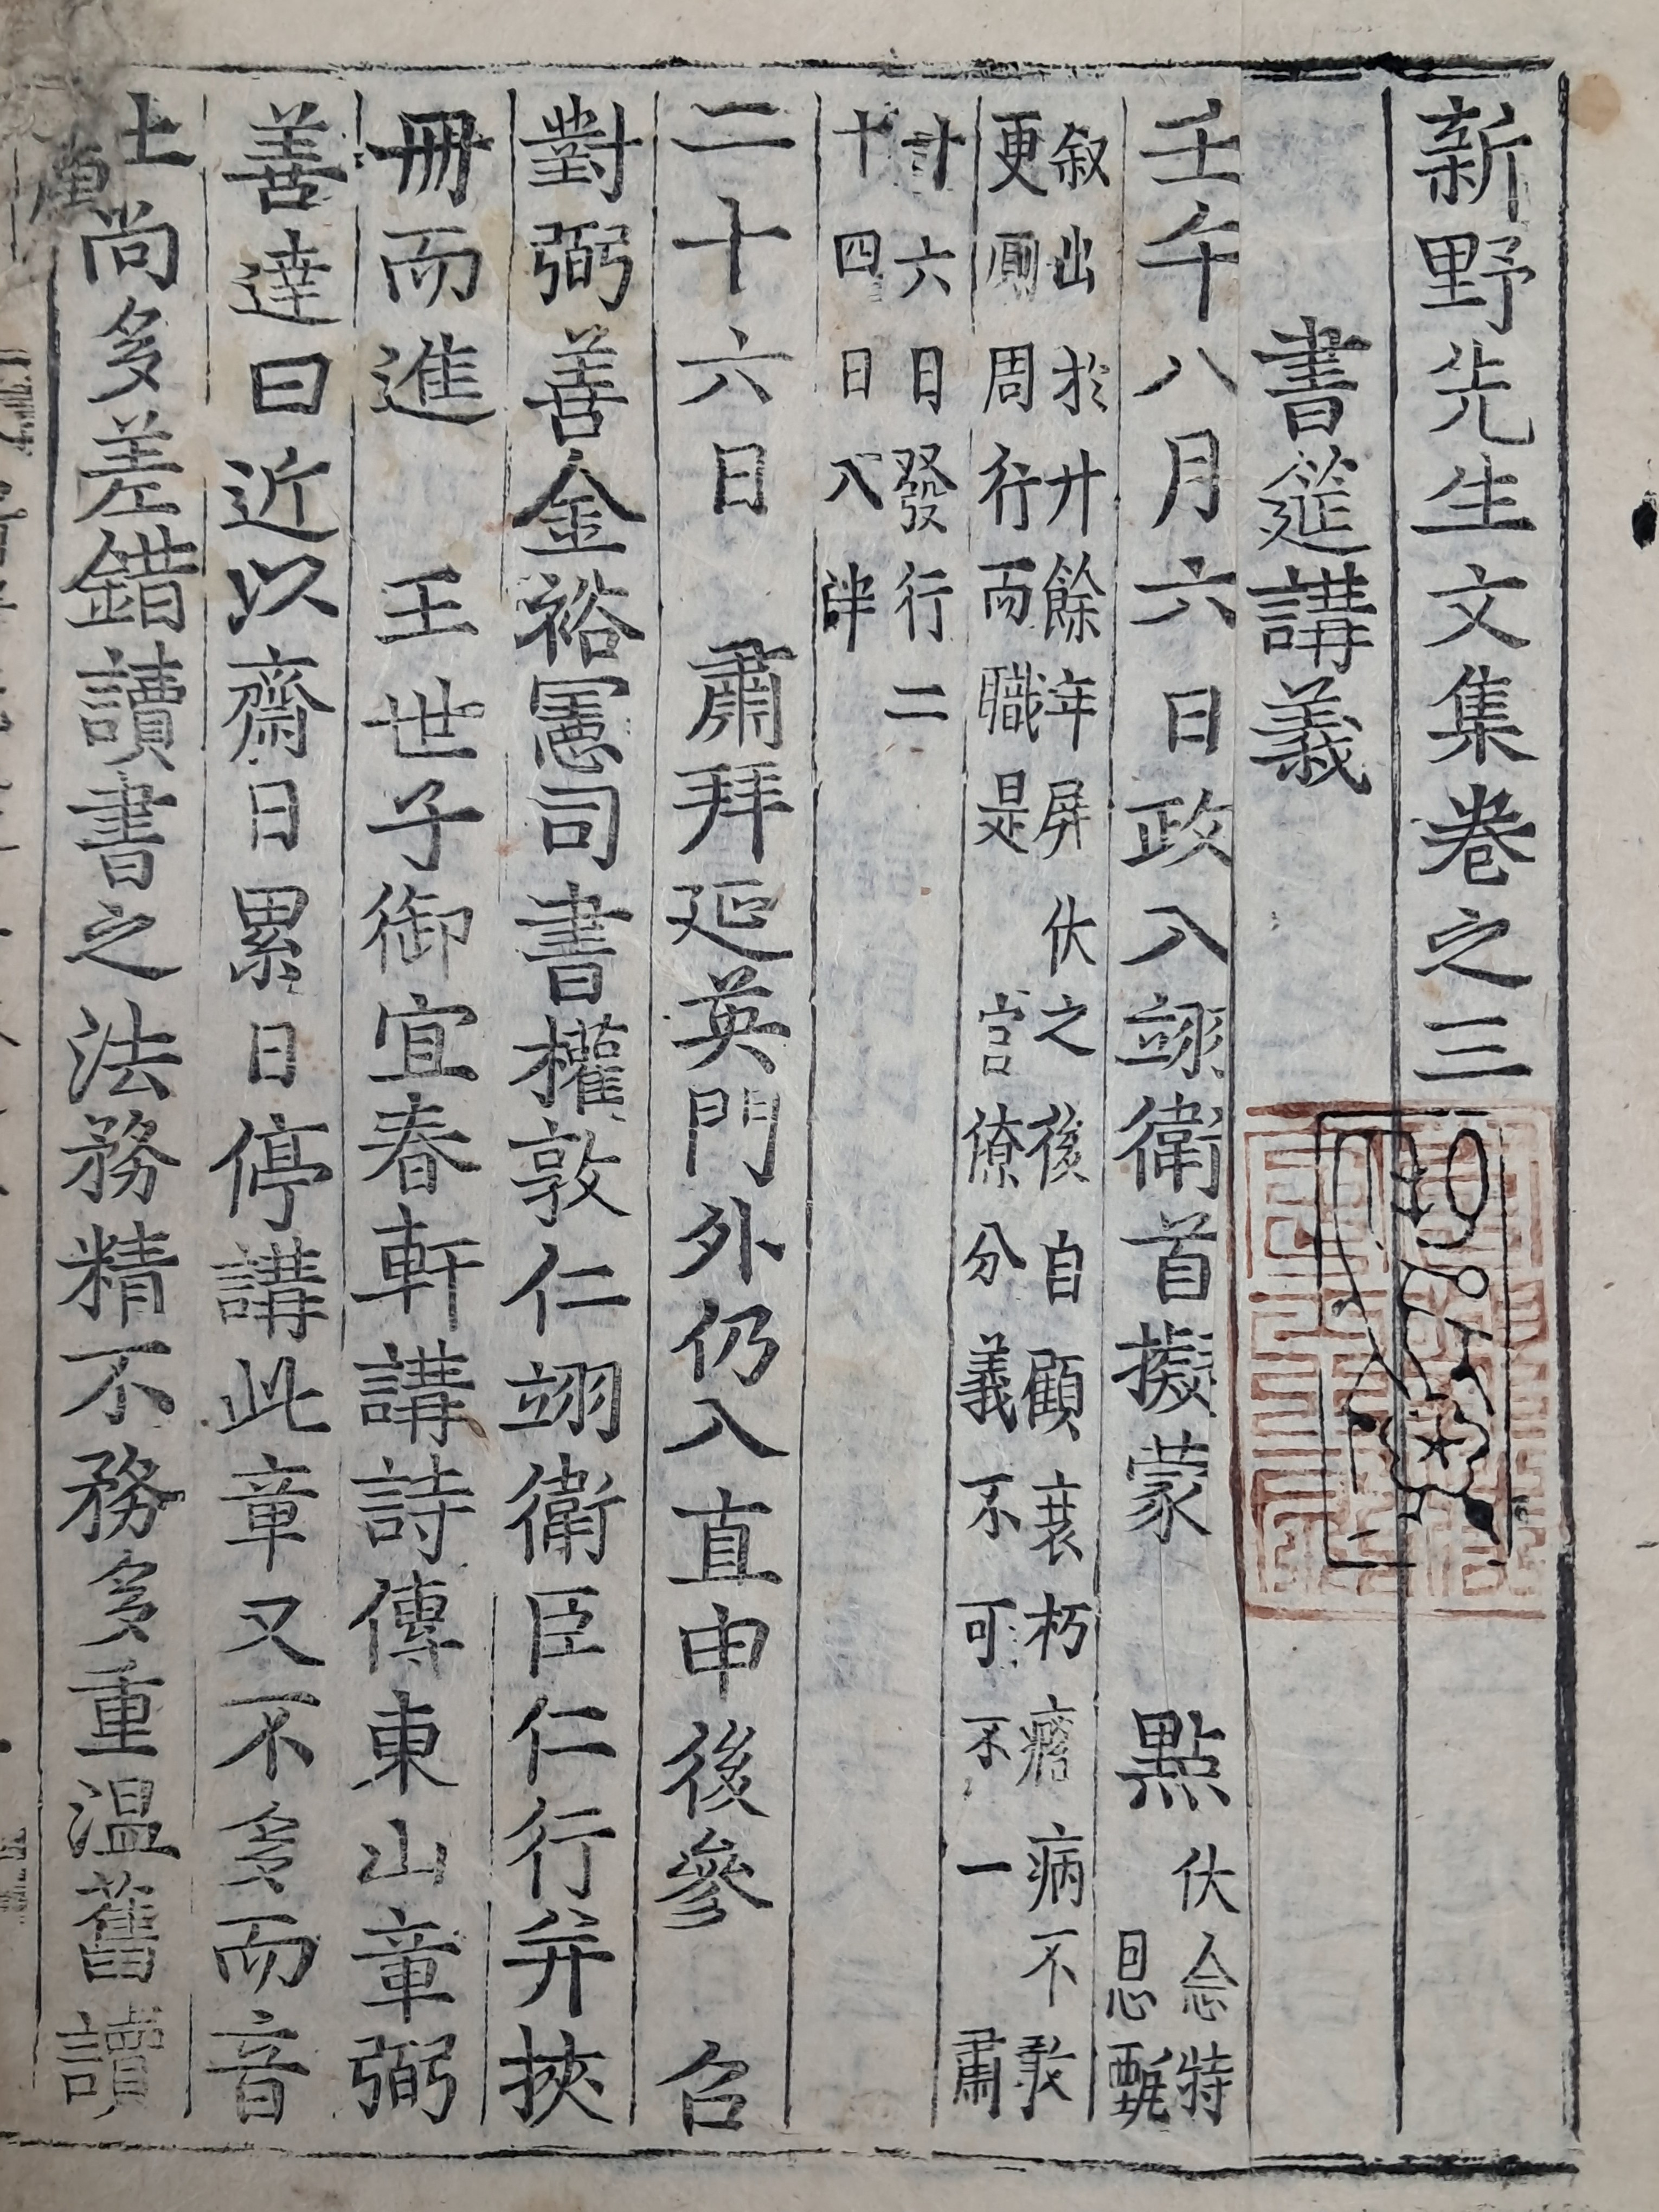 新野先生文集卷之三
書筵講義
壬午八月六日政入翊衛首擬蒙 點伏念特
恩甄
叙出於廾餘年屏伏之後自顧衰朽癃病不敢
更厠周行而職是 宮僚分義不可不一 肅
十六日發行二
十四日入泮
二十六日 肅拜延英門外仍入直申後參 召
對弼善金裕憲司書權敦仁翊衛臣仁行并挾
冊而進 王世子御宜春軒講詩傳東山章弼
善達曰近以齋日累日停講此章又不多而音
土尚多差錯讀書之法務精不務多重溫舊讀